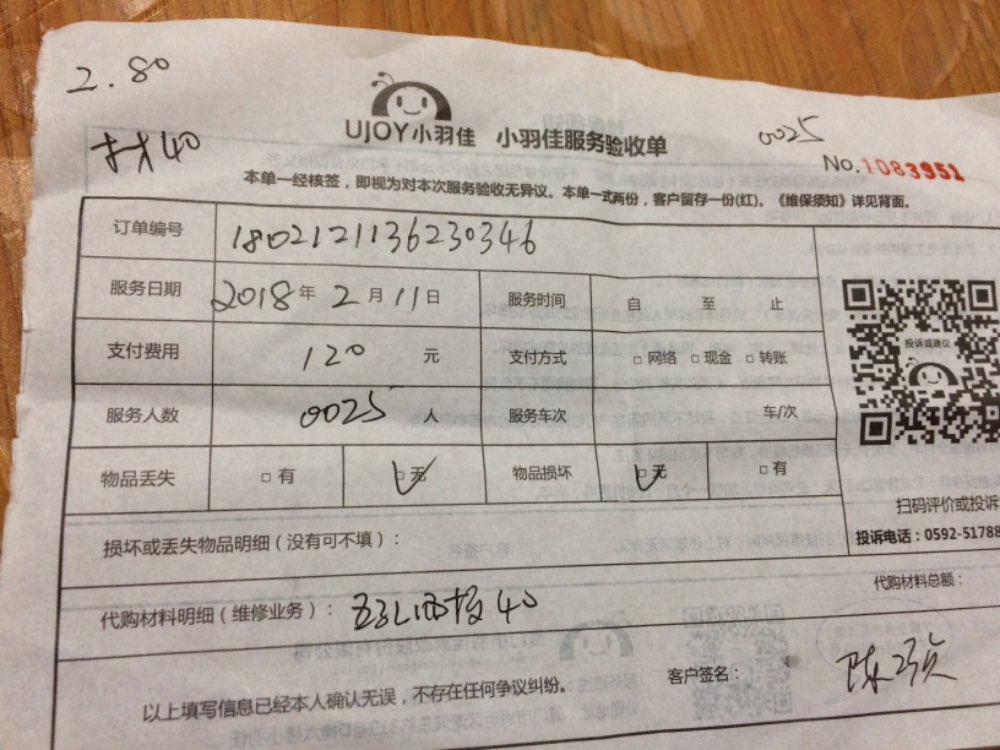 2.80
材40
UJOY小羽佳 小羽佳服务验收单
0025
No.1083951
本单一经核签，即视为对本次服务验收无异议。本单一式两份，客户留存一份(红)。《维保须知》详见背面。
订单编号 1802121136230346
服务日期 2018年2月11日 服务时间 自 至 止
支付费用 120 元 支付方式 □网络 □现金 □转账
投诉或建议
服务人数 0025 人 服务车次 车/次
物品丢失 □有 □无 物品损坏 □无 □有
扫码评价或投诉
损坏或丢失物品明细（没有可不填）：
投诉电话：0592-51788
代购材料明细（维修业务）： 40
代购材料总额：
以上填写信息已经本人确认无误，不存在任何争议纠纷。
客户签名： 陈